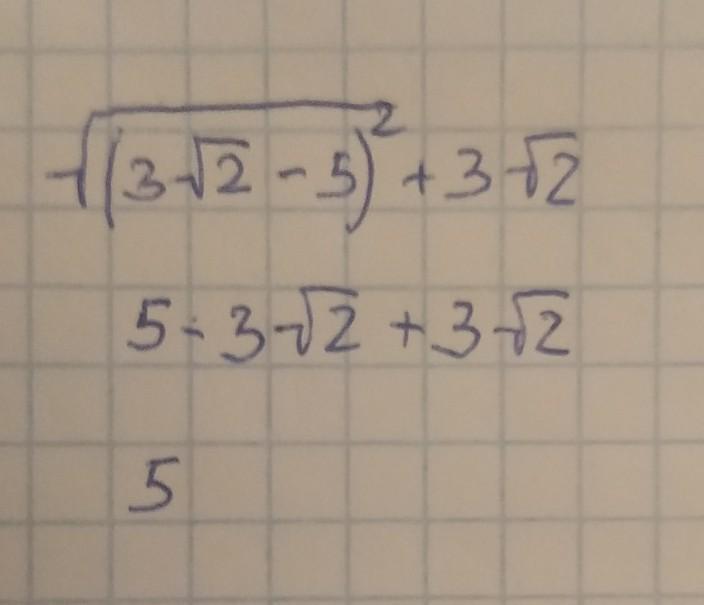 √(3√2 - 5)² + 3√2
5 - 3√2 + 3√2
5